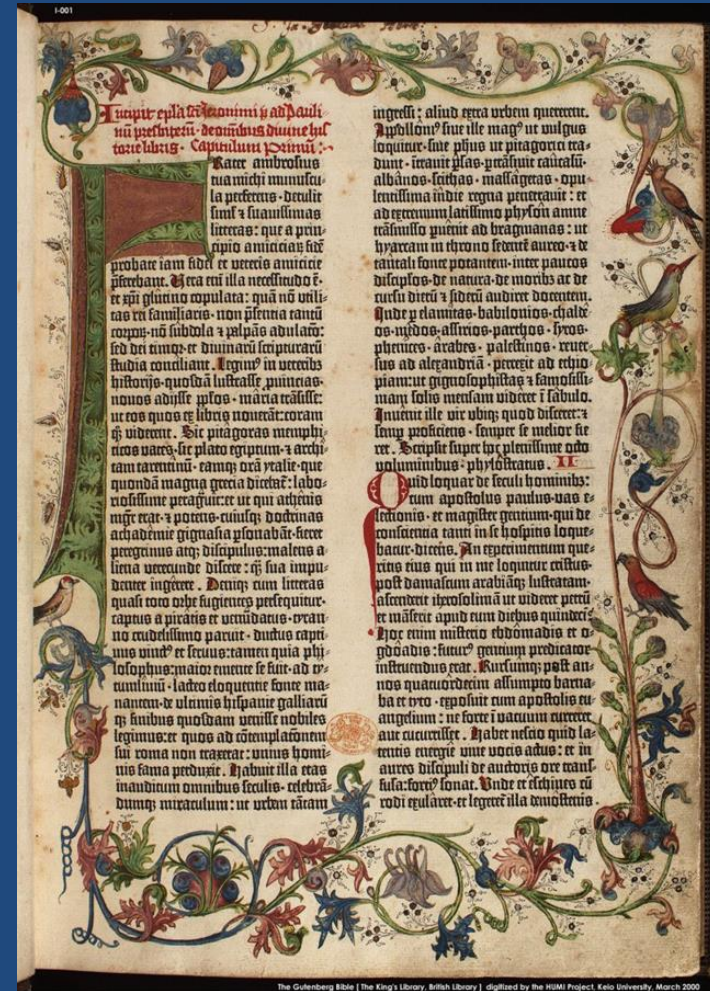 I-001
Incipit epl'a sc̄i Jeronimi p̄ ad Pauli-
nū presbiterū · de om̄ibus divine his-
torie libris · Capitulum Primū :·
Frater ambrosius
tua michi munuscu-
la perferens · detulit
simul' et suavissimas
litteras : que a prin-
cipio amiciciar̄ fidē
probate iam fidei et veteris amicicie
p̄ferebant . Vera eni illa necessitudo ē ·
et xp̄i glutino copulata : quam nō utili-
tas rei familiaris · non p̄sentia tantū
corporꝝ · nō subdola et palpās adulatō :
sed dei timorꝭ et divinarū scripturarū
studia conciliant . Legimꝰ in veteribꝫ
historijs · quosdā lustrasse ꝓvincias ·
novos adijsse pp̄los · maria trāsisse :
ut eos quos ex libris noverāt : coram
qꝫ viderent . Sic pitagoras memphi-
ticos vates · sic plato egiptum · et archi-
tam tarentinū · eamqꝫ orā ytalie · que
quondā magna grecia dicebat᷑ : labo-
riosissime peragravit : et ut qui athenis
mgr̄ erat · et potens · cuiusqꝫ doctrinas
achademie gignasia ꝑsonabāt · fieret
peregrinus atqꝫ discipulus : malens a-
liena verecunde discere : qꝫ sua impu-
denter ingerere . Deniqꝫ cum litteras
quasi toto orbe fugientes persequitur ·
captus a piratis et venūdatus · tyran-
no crudelissimo paruit · ductus capti-
vus vinctꝰ et servus : tamen quia phi-
losophus : maior emente se fuit · ad ty-
tumliviū · lacteo eloquentie fonte ma-
nantem · de ultimis hispanie galliarū
qꝫ finibus quosdam venisse nobiles
legimus : et quos ad cōtemplationem
sui roma non traxerat : unius homi-
nis fama perduxit . Habuit illa etas
inauditum omnibus seculis · celebrā-
dumqꝫ miraculum : ut urbem tātam
ingressi : aliud extra urbem quererent .
Appollonꝰ sive ille magꝰ ut vulgus
loquitur · sive ph̄us ut pitagorici tra-
dunt · ītravit ꝑsas · ꝑtrāsivit caucasū ·
albānos · scithas · massagetas · opu-
lentissima īndie regna penetravit : et
ad extremum latissimo physon amne
trāsmisso ꝑvenit ad bragmanas : ut
hyarcam in throno sedentē aureo · et de
tantali fonte potantem · inter paucos
discipl'os · de natura · de moribꝫ ac de
cursu dierū et siderū audiret docentem .
Inde ꝑ elamitas · babilonios · chalde-
os · medos · assirios · parthos · syros ·
phenices · arabes · palestinos · rever-
sus ad alexandriā · perrexit ad ethio-
piam : ut gignosophistas et famosissi-
mam solis mensam videret ī sabulo .
Invenit ille vir ubiqꝫ quod disceret : et
semꝑ proficiens · semper se melior fie-
ret . Scripsit super hoc plenissime octo
voluminibus · phylostratus . II
Quid loquar de seculi hominibꝫ :
cum apostolus paulus · vas e-
lectionis · et magister gentium · qui de
conscientia tanti in se hospitis loque-
batur · dicens . An experimentum que-
ritis eius qui in me loquitur cristus
post damascum arabiāqꝫ lustratam ·
ascenderit iherosolimā ut videret petrū
et māserit apud eum diebus quindeci :
hoc enim misterio ebdomadis et o-
gdoadis : futurꝰ gentium predicator
instruendus erat . Rursumqꝫ post an-
nos quatuordecim assumpto barna-
ba et tyto · exposuit cum apostolis eu-
angelium : ne forte ī vacuum curreret
aut cucurrisset . Habet nescio quid la-
tentis energie vive vocis actus : et in
aures discipuli de auctoris ore trans-
fusa : fortiꝰ sonat . Unde et eschines cū
rodi exularet · et legeret᷑ illa demostenis .
The Gutenberg Bible [ The King's Library, British Library ] digitized by the HUMI Project, Keio University, March 2000